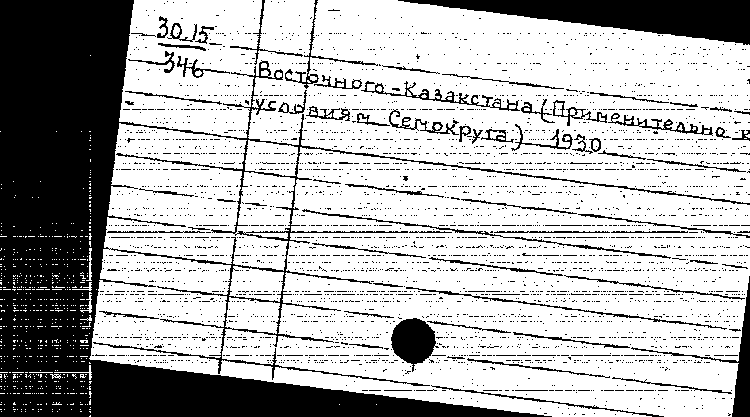 30.15
346
Восточного-Казакстана (Применительно к
условиям Семокруга.) 1930.